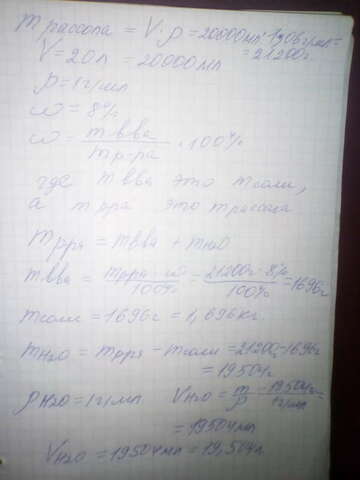 m рассола = V·ρ = 20000мл·1,06г/мл=
V = 20л = 20000мл = 21200г.
ρ = 1г/мл
ω = 8%
ω = m вва / m р-ра · 100%
где m вва это m соли,
а m рра это m рассола
m рра = m вва + m H2O
m вва = m рра · ω / 100% = 21200г · 8% / 100% = 1696г
m соли = 1696г = 1,696кг.
m H2O = m рра - m соли = 21200-1696г
= 19504г
ρ H2O = 1г/мл V H2O = m / ρ = 19504г / 1г/мл =
= 19504мл
V H2O = 19504мл = 19,504л.